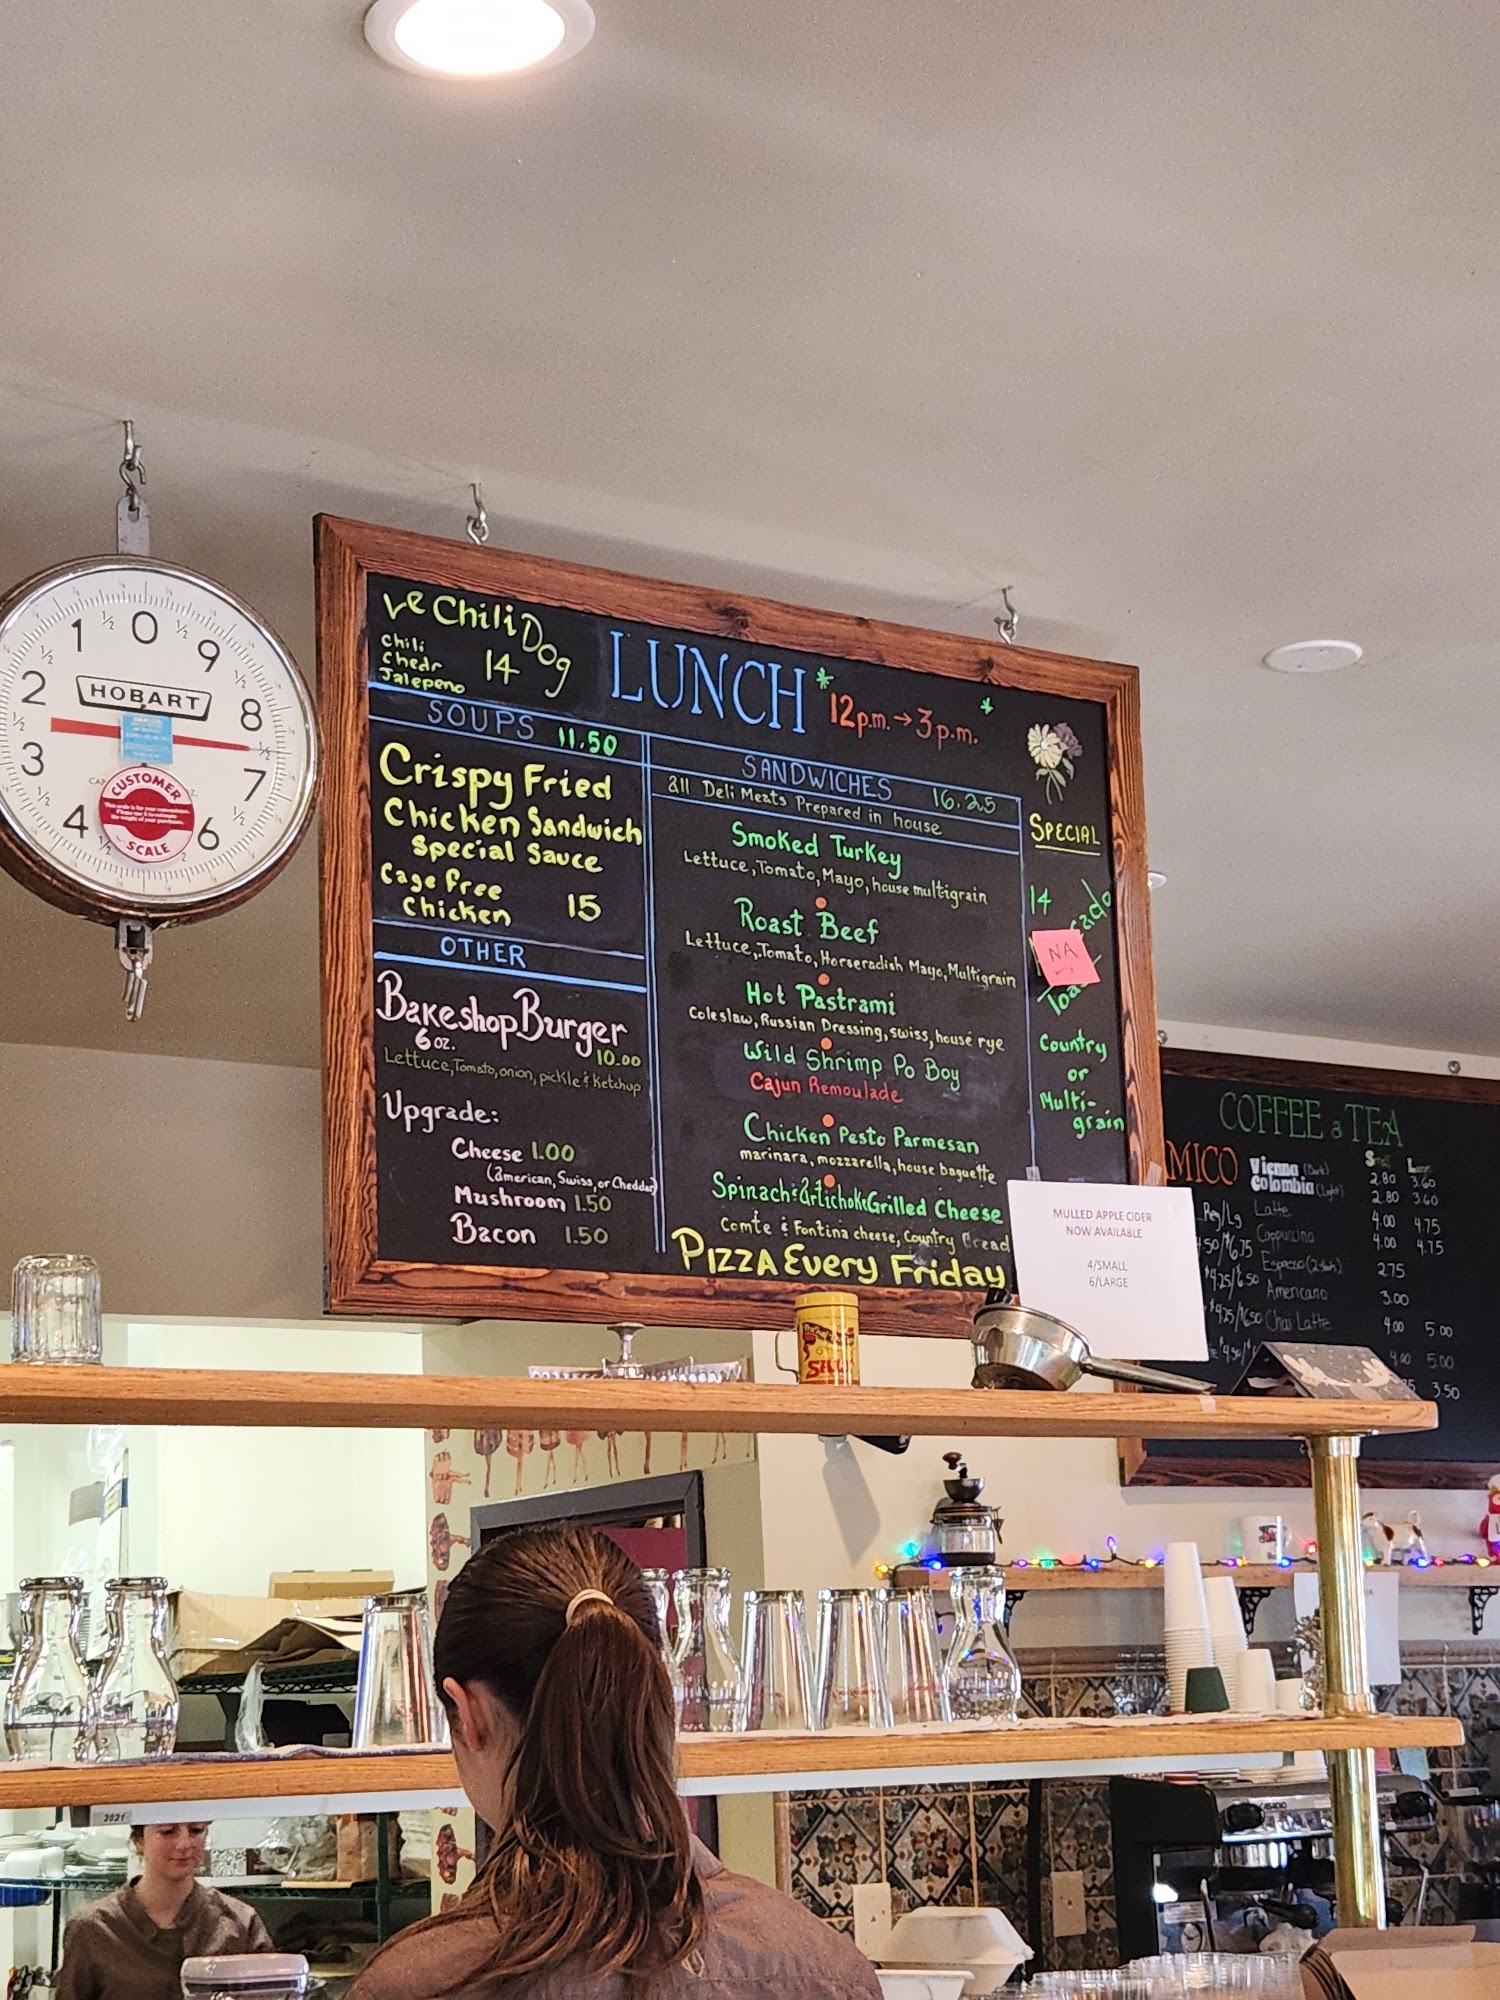 Ve Chili Dog
Chili
Chedr
Jalepeno
14
LUNCH
12p.m. → 3p.m.
SOUPS 11.50
Crispy Fried
Chicken Sandwich
Special Sauce
Cage free
Chicken 15
OTHER
Bakeshop Burger
6 oz. 10.00
Lettuce, Tomato, onion, pickle & Ketchup
Upgrade:
Cheese 1.00
(american, Swiss, or Cheddar)
Mushroom 1.50
Bacon 1.50
SANDWICHES 16.25
all Deli Meats Prepared in house
Smoked Turkey
Lettuce, Tomato, Mayo, house multigrain
Roast Beef
Lettuce, Tomato, Horseradish Mayo, Multigrain
Hot Pastrami
Coleslaw, Russian Dressing, swiss, house rye
Wild Shrimp Po Boy
Cajun Remoulade
Chicken Pesto Parmesan
marinara, mozzarella, house baguette
Spinach & Artichoke Grilled Cheese
Comte & Fontina cheese, Country Bread
PIZZA Every Friday
SPECIAL
14
NA
Country
or
Multi-
grain
MULLED APPLE CIDER
NOW AVAILABLE
4/SMALL
6/LARGE
COFFEE & TEA
MICO
Vienna (Dark) 2.80 3.60
Colombia (Light) 2.80 3.60
Reg/Lg
Latte 4.00 4.75
Cappuccino 4.00 4.75
Espresso (2 shots) 2.75
Americano 3.00
Chai Latte 4.00 5.00
4.00 5.00
3.50
0
9
8
7
6
4
3
2
1
HOBART
CUSTOMER
SCALE
2021